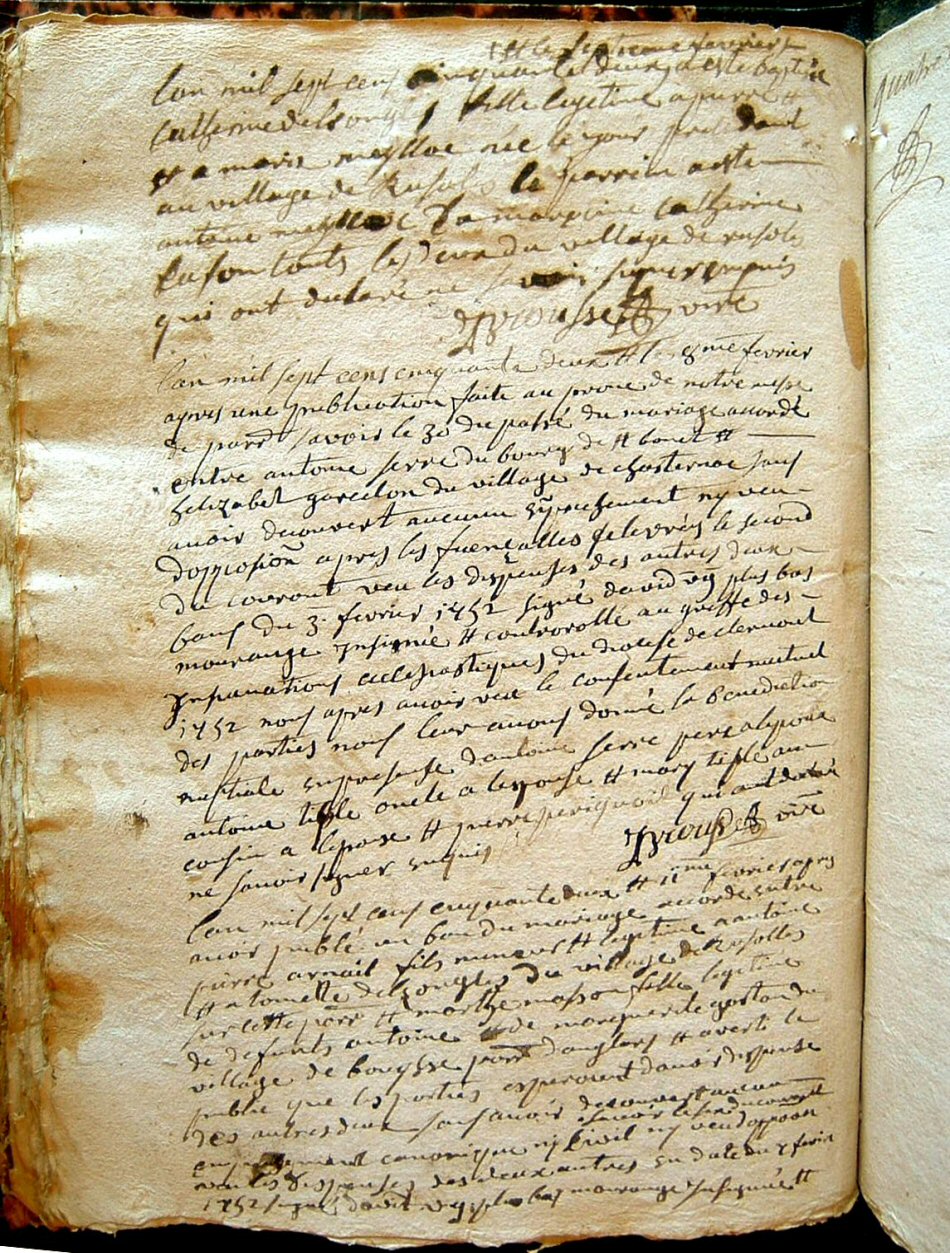 & le septieme fevrier
lan mil sept cens cinquante et deux a este baptisée
catherine delsongles fille legitime a pierre
& a marie meyllac née le jour precedant
au village de Rusolles le parrein a este
antoine meyllac la marreine catherine
Lafon touts les deux du village de rusoles
qui ont declaré ne savoir signer enquis
Brousse vire
lan mil sept cens cinquante deux & le 8me fevrier
apres une publication faite au prone de notre messe
de parr savoir le 30 du passé du mariage accordé
entre antoine serre du bourg de & bonet &
helizabet garcelon du village de chasternac sans
avoir decouvert aucun empechement ny veu
dopposion apres les fiencalles celebrées le second
du courant veu les dispenses des autres deux
bans du 3 fevrier 1752 signé david vg plus bas
mourange insignué & controrollé au greffe des
insinuations eclesiastiques du diocese de clermont
1752 nous apres avoir veu le consentement mutuel
des parties nous leur avons donné la benediction
nuptiale en presense dantoine serre pere a lepoux
antoine tible oncle a lepouse & mary tible au
cousin a lepouse & pierre qui ont declaré
ne savoir signer enquis Brousse vire
lan mil sept cens cinquante deux & 11me fevrier apres
avoir publié un ban du mariage accordé entre
pierre arnail fils mineur & legitime a antoine
& a tomette delsongles du village de Rusolles
sur cette parr & marthe masson fille legitime
de defunts antoine & de marguerite gastan du
village de bouysse parr danglars & averti le
public que les parties esperoient davoir dispense
des autres deux sans avoir decouvert aucun
empechement canonique ny civil ny veu doppoon
veu les dispenses des deux autres en date du 7 fevrier
1752 signé david vg plus bas mourange insignué &
quatre